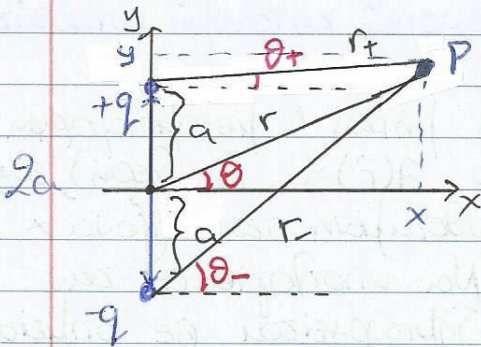 y
y
θ+
r+
P
+q
a
r
2a
θ
x
x
a
r-
θ-
-q